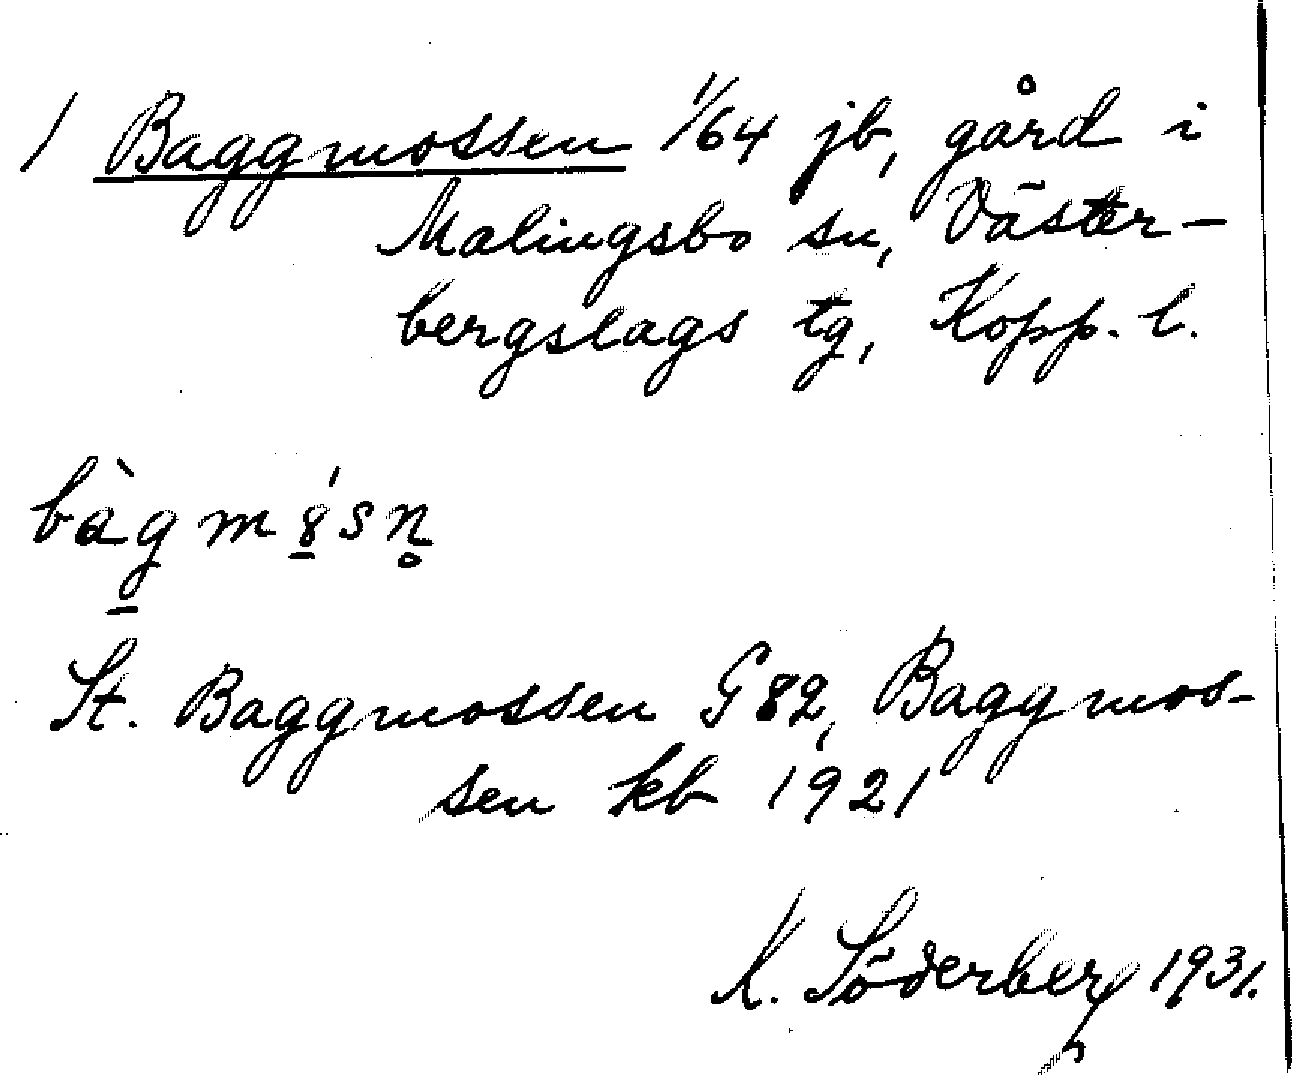 1 Baggmossen 1/64 jb, gård i
Malingsbo sn, Väster-
bergslags tg, Kopp. l.
bàg̱m8̱́sn̥
St. Baggmossen G82, Baggmos-
sen kb 1921
K. Söderberg 1931.